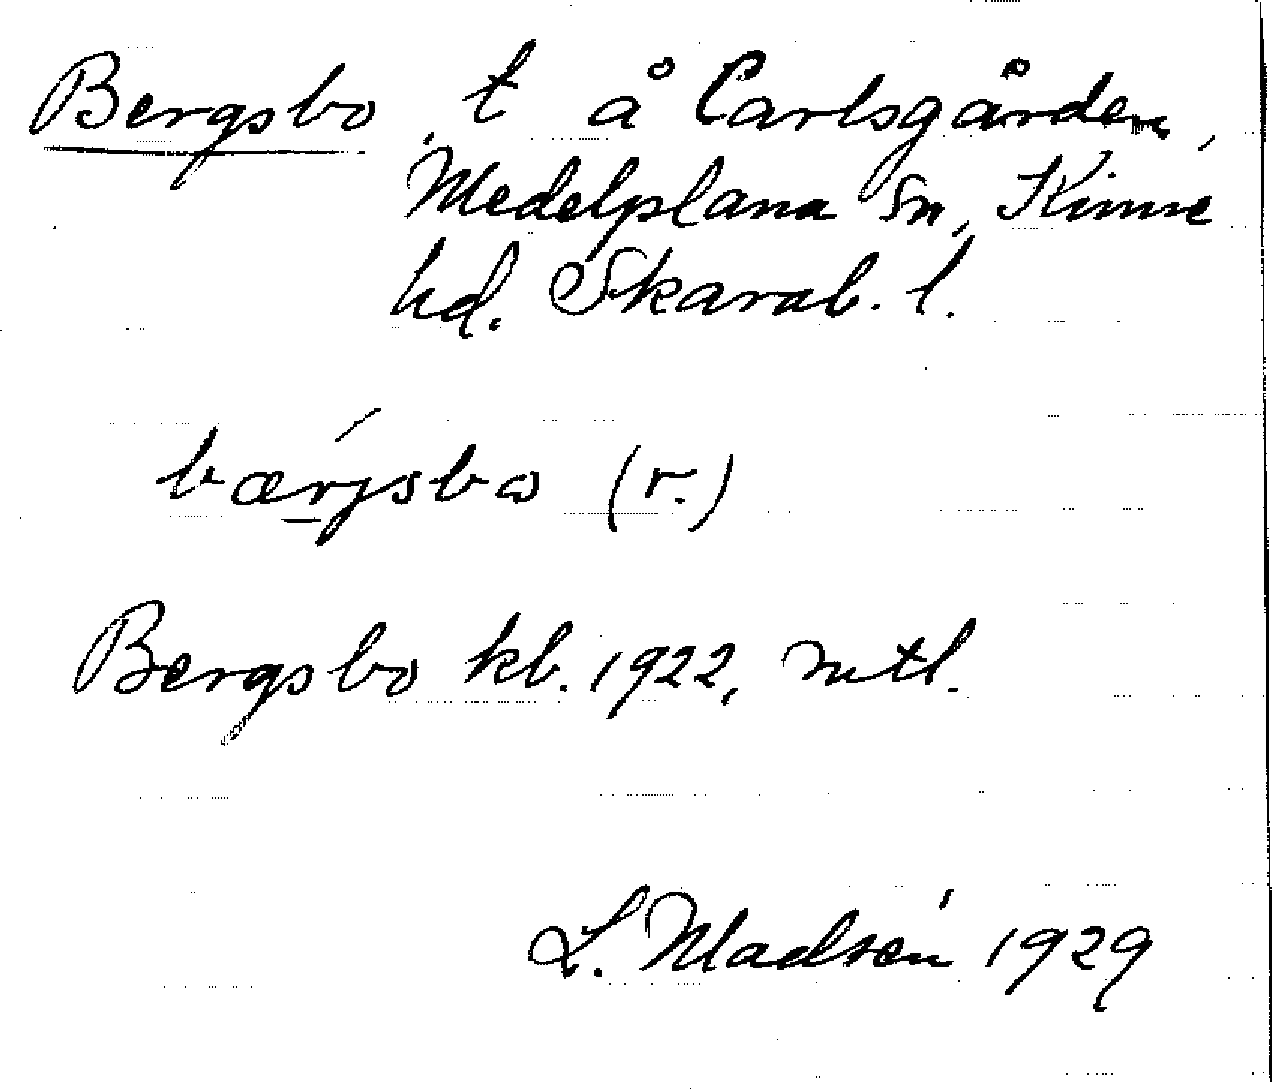 Bergsbo, t å Carlsgården,
Medelplana sn, Kinne
hd. Skarab. l.
bærjsbo (r.)
Bergsbo kb. 1922, mtl.
L. Madsén 1929